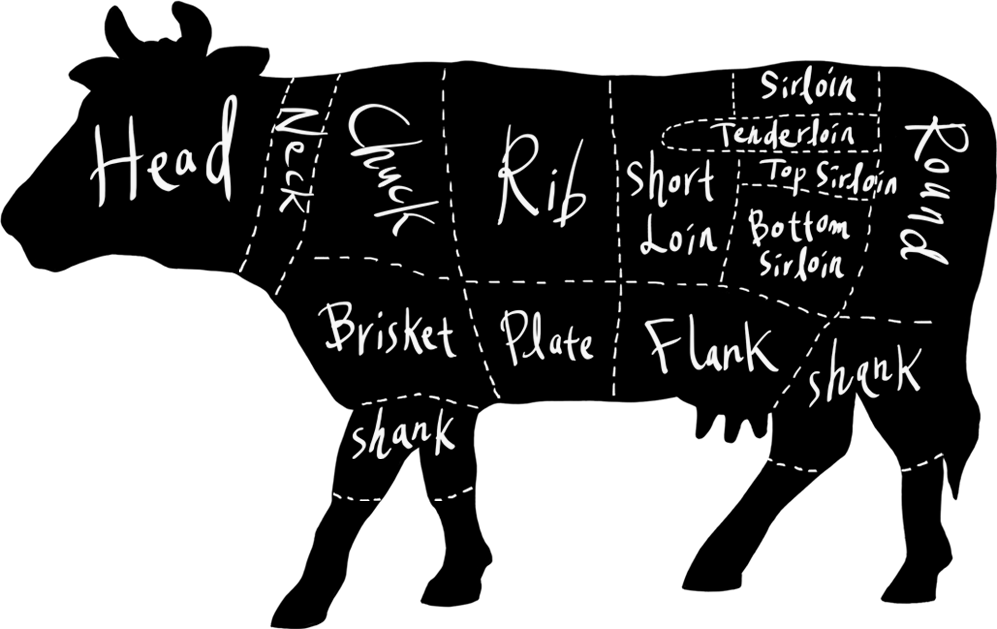 Head
Neck
Chuck
Rib
Short
Loin
Sirloin
Tenderloin
Top Sirloin
Bottom
Sirloin
Round
Brisket
Plate
Flank
shank
shank